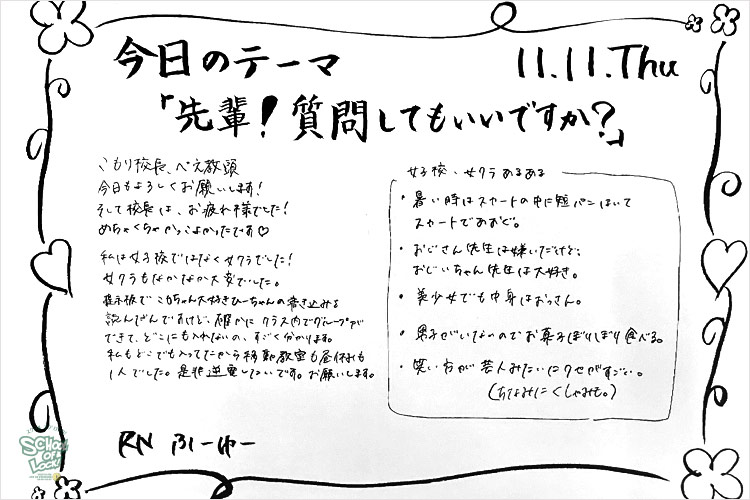 今日のテーマ 11.11.Thu
「先輩!質問してもいいですか?」
こもり校長、ぺえ教頭
今日もよろしくお願いします!
そして校長は、お疲れ様でした!
めちゃくちゃかっこよかったです♡
私は女子校ではなく女クラでした!
女クラもなかなか大変でした。
掲示板でこかちゃん大好きひーちゃんの書き込みを
読んだんですけど、確かにクラス内でグループが
できて、どこにも入れないの、すごく分かります。
私もどこでも入ってたから移動教室も昼休みも
1人でした。是非逆電したいです。お願いします。
RN ふーゆー
女子校、女クラあるある
・暑い時はスカートの中に短パンはいて
スカートであおぐ。
・おじさん先生は嫌いだけど、
おじいちゃん先生は大好き。
・美少女でも中身はおっさん。
・男子がいないのでお菓子ぼりぼり食べる。
・笑い方が芸人みたいにクセがすごい。
(ちなみにくしゃみも。)
SCHOOL
OF
LOCK!